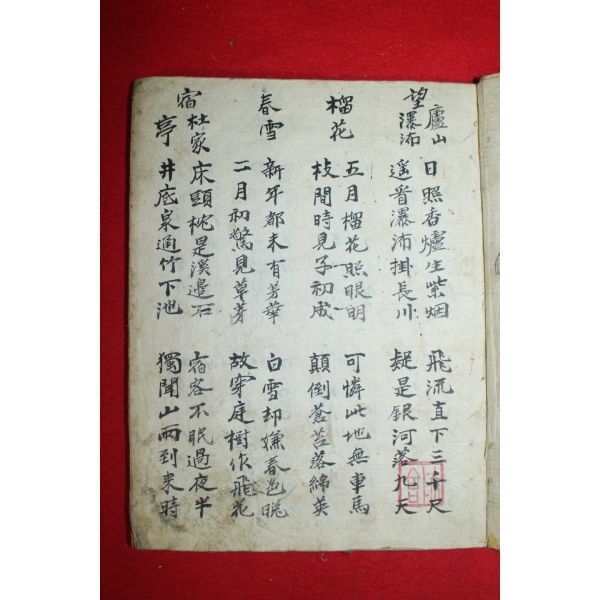 望廬山瀑沛
日照香爐生紫烟
遥看瀑沛掛長川
飛流直下三千尺
疑是銀河落九天
榴花
五月榴花照眼明
枝間時見子初成
可憐此地無車馬
顛倒蒼苔落綿英
春雪
新年都未有芳華
二月初驚見草芽
白雪却嫌春色晩
故穿庭樹作飛花
宿杜家亭
床頭枕是溪邊石
井底泉通竹下池
宿客不眠過夜半
獨聞山雨到來時